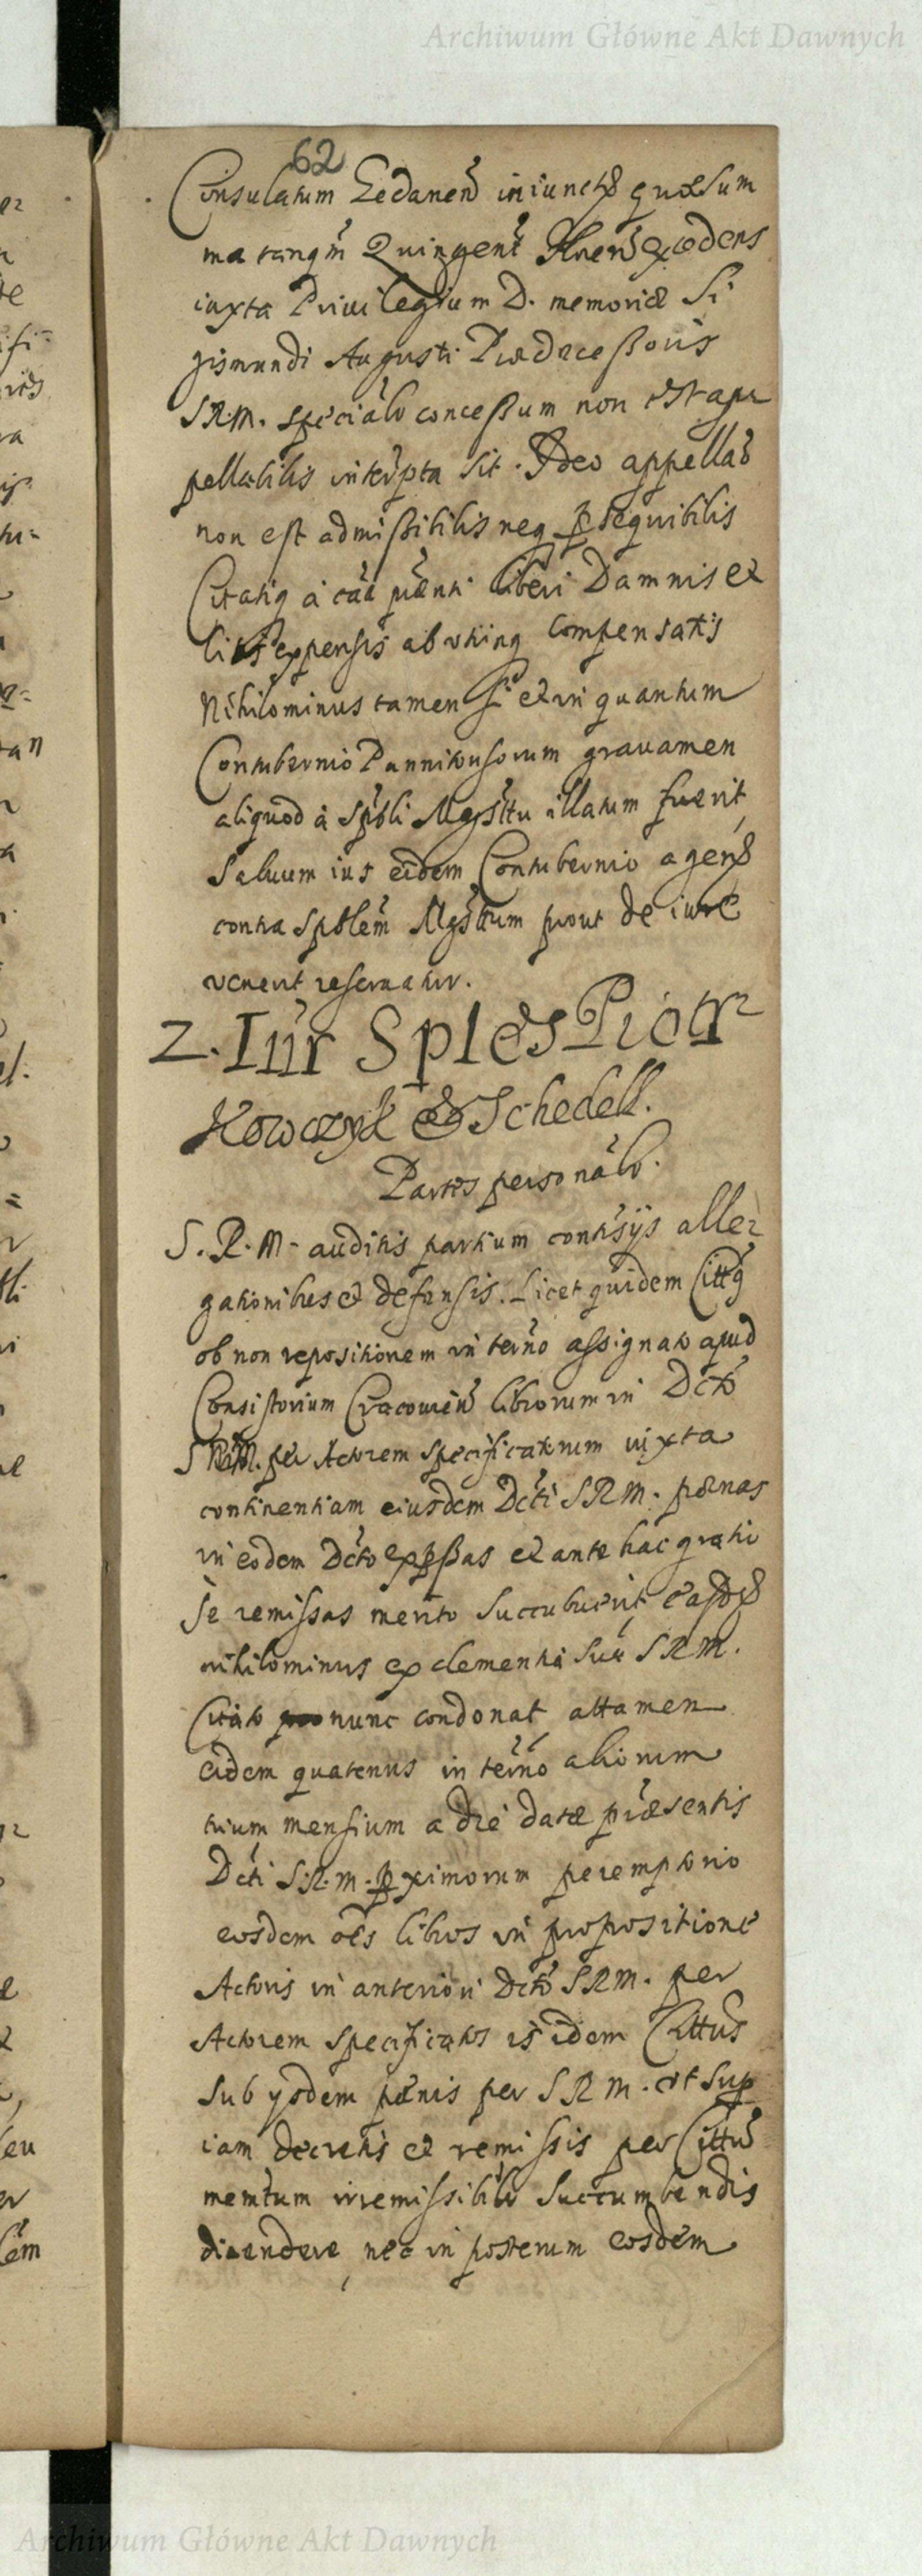 Archiwum Główne Akt Dawnych
62
Consulatum Gedanen iniuncta quæ sum
ma tanqm Quingent flnen excedens
iuxta Privilegium D. memoriæ Si
gismundi Augusti Prædecessoris
SRM. specialr concessum non est ap
pellabilis interpta sit. Ideo appellao
non est admissibilis neq psequibilis
Citatiq à caa pnti liberi Damnis et
litis expensis ab utrinq compensatis
Nihilominus tamen si et in quantum
Contubernio Pannitonsorum gravamen
aliquod à spbli Mgrstu illatum fuerit
Salvum ius eidem Contubernio agend
contra spblem Mgrstum prout de iure
venerit reservatur.
2. Inr Sples Piotr
Kowczyk & Schedell.
Partes personalr.
S. R. M. auditis partium contrsijs alle
gationibus et defensis. Licet quidem Cittq
ob non repositionem in termo assignato apud
Consistorium Cracovien librorum in Dcto
SRM. per Actorem specificatorum iuxta
continentiam eiusdem Dcti SRM. pœnas
in eodem Dcto expssas et ante hac gratio
se remissas merito succubuerit easde
nihilominus ex clementia sua SRM.
Citato nunc condonat attamen
eidem quatenus in termo aliorum
trium mensium a die datæ præsentis
Dcti S.R.M. pximorum peremptorio
eosdem oes libros in propositione
Actoris in anteriori Dcto SRM. per
Actorem specificatos is idem Cittus
sub ijsdem pœnis per SRM. ut sup
iam decretis et remissis per Cittu
memtum irremissibilr succumbendis
nec in posterum eosdem
Archiwum Główne Akt Dawnych